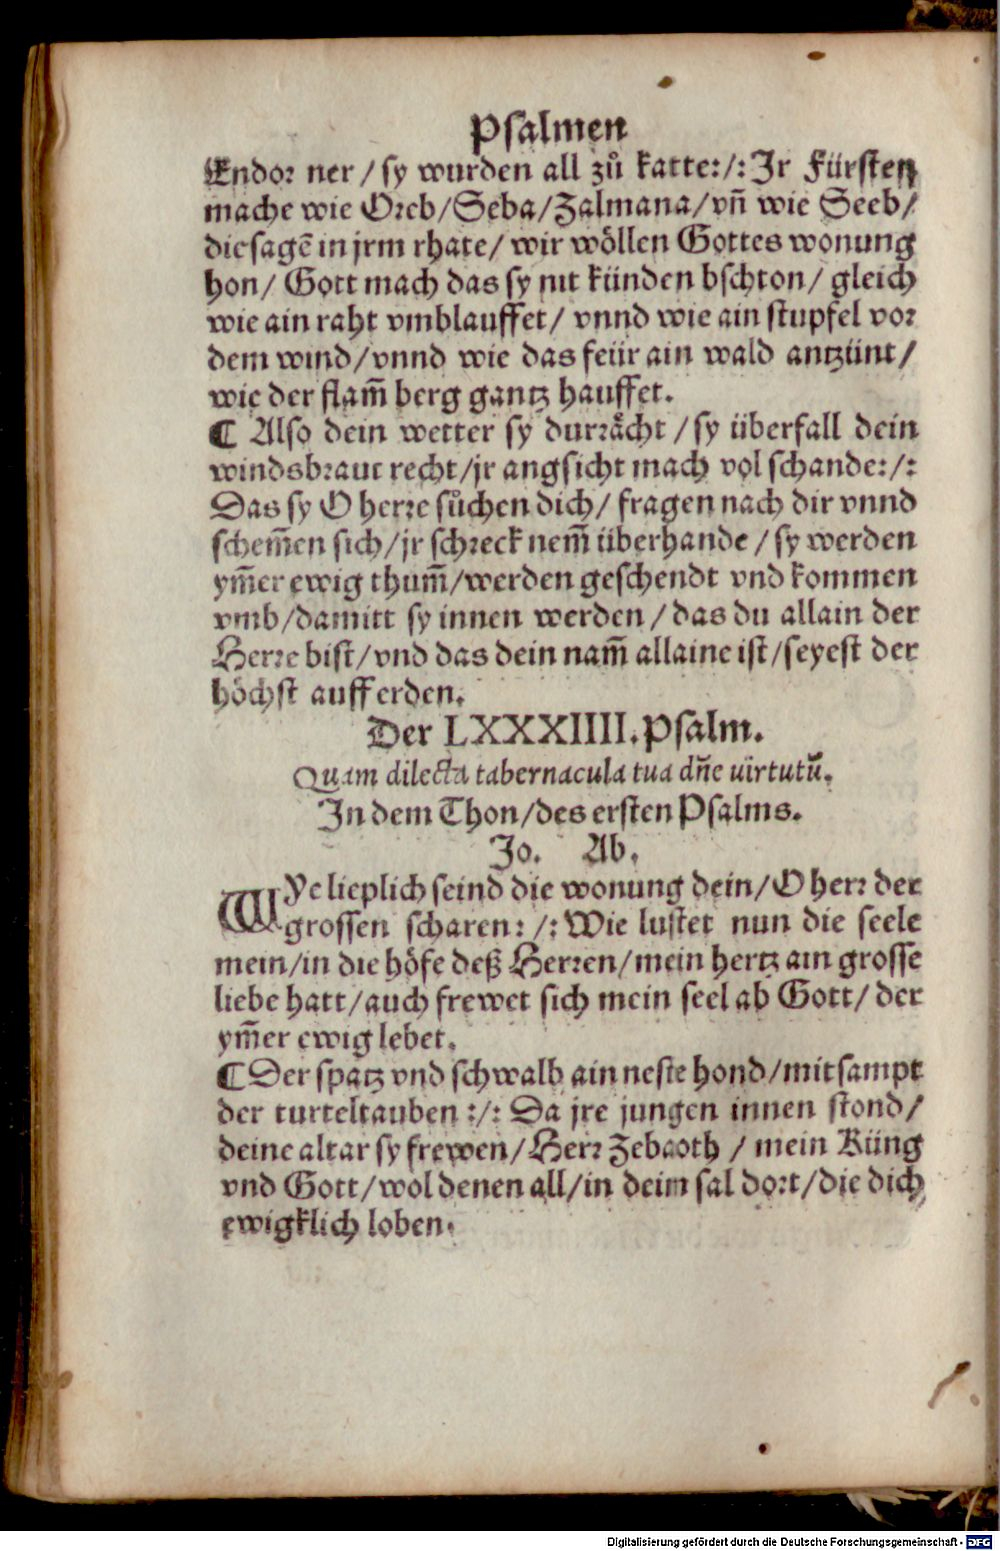 Psalmen
Endor ner / sy wurden all zů katte:/: Jr Fürsten
mache wie Oreb/Seba/Zalmana/vñ wie Seeb/
die sagẽ in jrm rhate/ wir wöllen Gottes wonung
hon/ Gott mach das sy nit künden bschton/ gleich
wie ain raht vmblauffet/ vnnd wie ain stupfel vor
dem wind/vnnd wie das feür ain wald antzünt/
wie der flam̃ berg gantz hauffet.
¶ Also dein wetter sy durrächt / sy überfall dein
windsbraut recht/jr angsicht mach vol schande:/:
Das sy O herre sůchen dich/ fragen nach dir vnnd
schem̃en sich/jr schreck nem̃ überhande / sy werden
ym̃er ewig thum̃/werden geschendt vnd kommen
vmb/damitt sy innen werden / das du allain der
Herre bist/vnd das dein nam̃ allaine ist/seyest der
höchst auff erden.
Der LXXXIIII. Psalm.
Quam dilecta tabernacula tua dñe uirtutũ.
In dem Thon/des ersten Psalms.
Jo. Ab.
WYe lieplich seind die wonung dein/O herr der
grossen scharen: /: Wie lustet nun die seele
mein/in die höfe deß Herren/mein hertz ain grosse
liebe hatt/auch frewet sich mein seel ab Gott/ der
ym̃er ewig lebet.
¶ Der spatz vnd schwalb ain neste hond/mitsampt
der turteltauben :/: Da jre jungen innen stond/
deine altar sy frewen/Herr Zebaoth / mein Küng
vnd Gott/wol denen all/in deim sal dort/die dich
ewigklich loben.
Digitalisierung gefördert durch die Deutsche Forschungsgemeinschaft - DFG